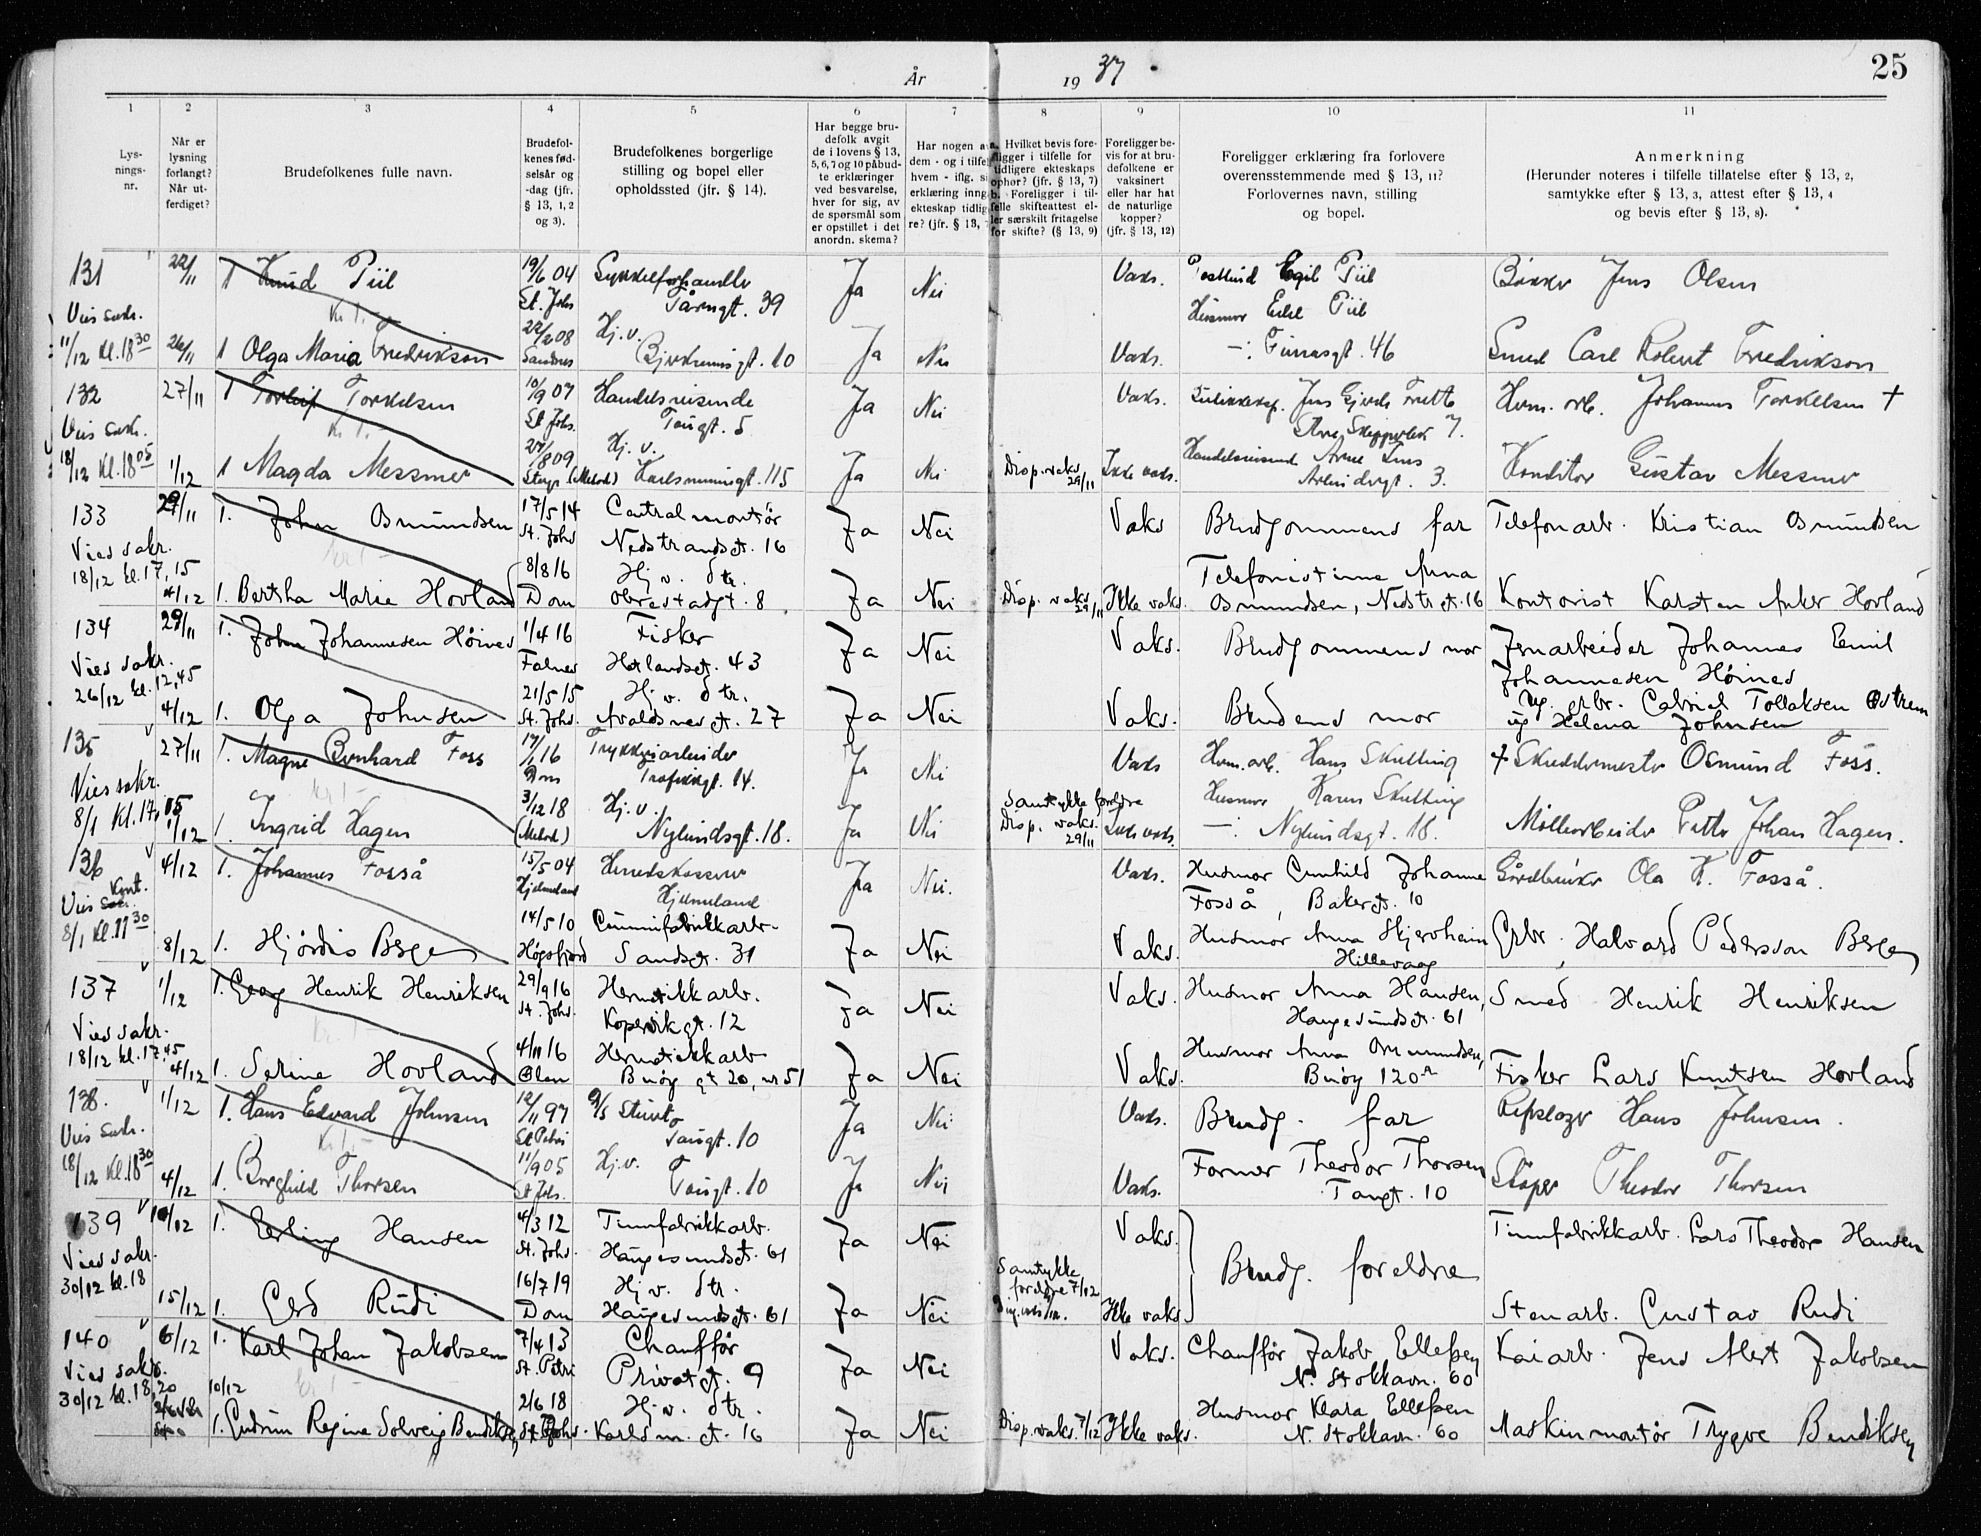 År 19 37
25
1 2 3 4 5 6 7 8 9 10 11
Lysningsnr.
Når er lysning forlangt? Når utferdiget?
Brudefolkenes fulle navn.
Brudefolkenes fødselsår og -dag (jfr. § 13, 1, 2 og 3).
Brudefolkenes borgerlige stilling og bopel eller opholdssted (jfr. § 14).
Har begge brudefolk avgit de i lovens § 13, 5, 6, 7 og 10 påbudte erklæringer ved besvarelse, hver for sig, av de spørsmål som er opstillet i det anordn. skema?
Har nogen a
dem - og i tilfel
hvem - iflg. si
erklæring inng
ekteskap tidlig
re? (jfr. § 13,
a. Hvilket bevis foreligger i tilfelle for tidligere ekteskaps ophør? (jfr. § 13, 7)
b. Foreligger i tilfelle skifteattest eller særskilt fritagelse for skifte? (§ 13, 9)
Foreligger bevis for at brudefolkene er vaksinert eller har hat de naturlige kopper? (jfr. § 13, 12)
Foreligger erklæring fra forlovere overensstemmende med § 13, 11? Forlovernes navn, stilling og bopel.
Anmerkning
(Herunder noteres i tilfelle tillatelse efter § 13, 2, samtykke efter § 13, 3, attest efter § 13, 4 og bevis efter § 13, 8).
131 22/11 1 Knud Piil 19/6 04 St. Johs Sykkelforhandler Tårngt. 39 Ja Nei Vaks. Egil Piil Bøkker Jens Olsen
Vies sakr. 11/12 kl. 18 30 26/11 1 Olga Maria Fredrikson 22/2 08 Sandnes Hj. v. Bjerkreimsgt. 10 Ja Nei Vaks. Husmor Piil 46 Smed Carl Robert Fredrikson
132 27/11 1 Torleif Torkelsen 10/9 07 St Johs. Handelsreisende Taugt. 5 Ja Nei Vaks. Jens Gjerde 7. Herm. arb. Johannes Torkelsen †
Vies sakr. 18/12 kl. 18 05 1/12 1 Magda Messmer 27/8 09 (Metod.) Hj. v. Karlsminnegt. 115 Ja Nei Disp. vaks. 29/11 Ikke vaks. Handelsreisend Arne 3. Konditor Gustav Messmer
133 29/11 1. John Osmundsen 17/5 14 St. Johs Centralmontør Nedstrandsgt. 16 Ja Nei Vaks Brudgommens far Telefonarb. Kristian Osmundsen
Vies sakr. 18/12 kl. 17,15 4/12 1. Bertha Marie Hovland 8/8 16 Dom Hj. v. dtr. Obrestadgt. 8 Ja Nei Disp. vaks. 29/11 Ikke vaks. Telefonistinne Anna Osmundsen, Nedstr. gt. 16 Kontorist Karsten Anker Hovland
134 29/11 1. John Johannesen Høines 1/4 16 Falnes Fisker Hetlandsgt. 43 Ja Nei Vaks. Brudgommens mor Jernarbeider Johannes Emil Johannesen Høines
Vies sakr. 26/12 kl. 12,45 4/12 1. Olga Johnsen 21/5 15 St. Johs. Hj. v. dtr. Avaldsnesgt. 27 Ja Nei Vaks. Brudens mor Ug. grbr. Gabriel Tollaksen Østrem
ug Helena Johnsen
135 27/11 1. Magne Bernhard Foss 17/1 16 Dom Trykkeriarbeider Trafikkgt. 14. Ja Nei Vaks Herm. arb. Hans Skulling † Skreddermester Osmund Foss.
Vies sakr. 8/1 kl. 17,15 1/12 1. Ingrid Hagen 3/12 18 (Metod.) Hj. v. Nylundsgt. 18. Ja Nei Samtykke foreldre Disp. vaks. 29/11 Ikke vaks. Husmor Karen Skulling Nylundsgt. 18. Møllearbeider Petter Johan Hagen.
136 4/12 1. Johannes Fosså 15/5 04 Hjelmeland Herredskasserer Hjelmeland Ja Nei. Vaks. Husmor Gunhild Johanne Fosså, Bakergt. 10 Gårdbruker Ola K. Fosså.
Vies Kont. 8/1 kl. 11 30 8/12 1. Hjørdis Berge 14/5 10 Høgsfjord Gummifabrikkarb. Sandsgt. 31 Ja Nei Vaks. Husmor Anna Skjerveheim Hillevaag Grbr. Halvard Pedersson Berge
137 1/12 1. Georg Henrik Henriksen 29/9 16 St. Johs. Hermetikkarb. Kopervikgt. 12 Ja Nei Vaks. Husmor Anna Hansen, Haugesundsgt. 61 Smed Henrik Henriksen
Vies sakr. 18/12 kl. 17,45 4/12 1. Serine Hovland 4/11 16 Ølen Hermetikkarb Buøy gt 20, nr 51 Ja Nei Vaks. Husmor Anna Osmundsen, Buøy 120 a Fisker Lars Knutsen Hovland
138. 1/12 1. Hans Edvard Johnsen 12/11 97 St Petri D/S Stuert Taugt. 10 Ja Nei Vaks. Brudg. far Repslager Hans Johnsen.
Vies sakr. 18/12 kl. 18 30 4/12 1. Borghild Thorsen 11/9 05 St Johs. Hj. v. Taugt. 10 Ja Nei Vaks. Former Theodor Thorsen Taugt. 10 Støper Theodor Thorsen
139 10/12 1. Erling Hansen 4/3 12 St. Johs. Tinnfabrikkarb. Haugesundsgt. 61 Ja Nei Vaks. Brudg. foreldre Tinnfabrikkarb. Lars Theodor Hansen
Vies sakr. 30/12 kl. 18 15/12 1. Gerd Rudi 16/7 19 Dom Hj. v. dtr. Haugesundsgt. 61 Ja Nei Samtykke foreldre 7/12 Ikke vaks. Stenarb. Gustav Rudi
140 6/12 1. Karl Johan Jakobsen 7/4 13 St. Petri Chauffør Privatgt. 9 Ja Nei Vaks. Chauffør Jakob Ellefsen N. Stokkavn. 60 Kaiarb. Jens Alert Jakobsen
Vies sakr. 30/12 kl. 18,20 10/12 1. Gudrun Regine Solveig Bendiksen 2/6 18 St. Johs. Hj. v. dtr. Karlsm. gt. 16 Ja Nei Disp. vaks. 7/12 Ikke vaks. Husmor Klara Ellefsen N. Stokkavn. 60 Maskinmontør Trygve Bendiksen